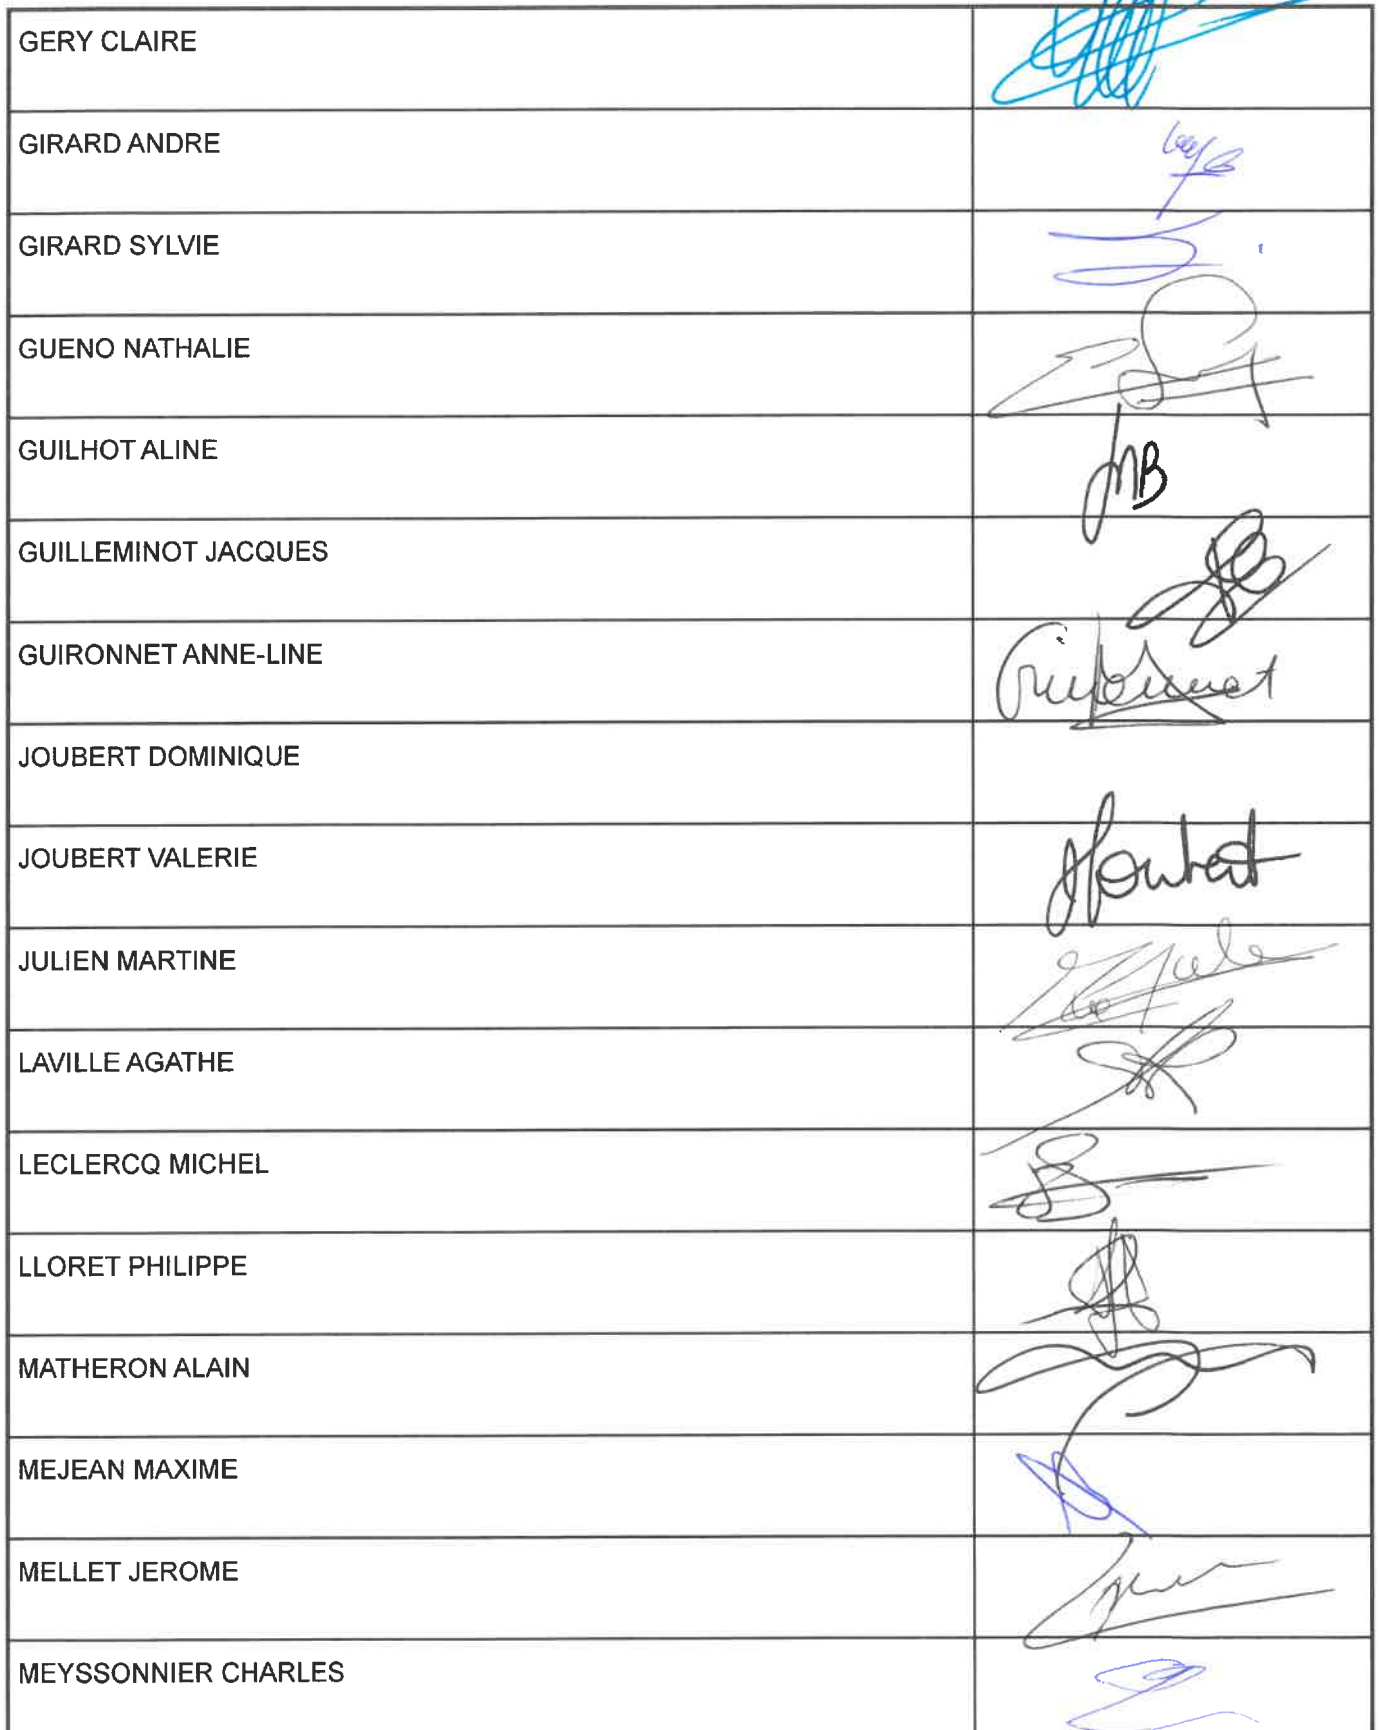 GERY CLAIRE
GIRARD ANDRE
GIRARD SYLVIE
GUENO NATHALIE
GUILHOT ALINE
GUILLEMINOT JACQUES
GUIRONNET ANNE-LINE
JOUBERT DOMINIQUE
JOUBERT VALERIE
JULIEN MARTINE
LAVILLE AGATHE
LECLERCQ MICHEL
LLORET PHILIPPE
MATHERON ALAIN
MEJEAN MAXIME
MELLET JEROME
MEYSSONNIER CHARLES